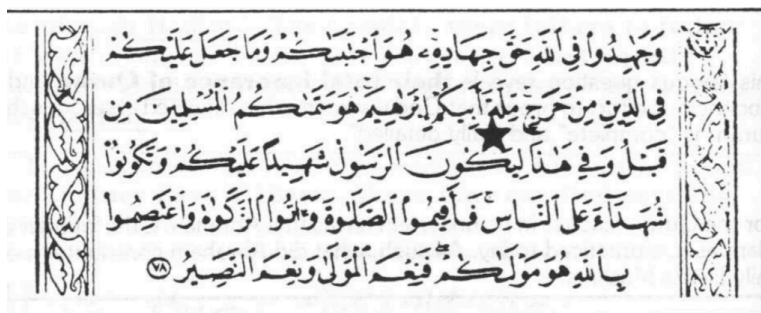 وَجَٰهِدُوا۟ فِى ٱللَّهِ حَقَّ جِهَادِهِۦ هُوَ ٱجْتَبَىٰكُمْ وَمَا جَعَلَ عَلَيْكُمْ
فِى ٱلدِّينِ مِنْ حَرَجٍ مِّلَّةَ أَبِيكُمْ إِبْرَٰهِيمَ هُوَ سَمَّىٰكُمُ ٱلْمُسْلِمِينَ مِن
قَبْلُ وَفِى هَٰذَا لِيَكُونَ ٱلرَّسُولُ شَهِيدًا عَلَيْكُمْ وَتَكُونُوا۟
شُهَدَآءَ عَلَى ٱلنَّاسِ فَأَقِيمُوا۟ ٱلصَّلَوٰةَ وَءَاتُوا۟ ٱلزَّكَوٰةَ وَٱعْتَصِمُوا۟
بِٱللَّهِ هُوَ مَوْلَىٰكُمْ فَنِعْمَ ٱلْمَوْلَىٰ وَنِعْمَ ٱلنَّصِيرُ ٧٨